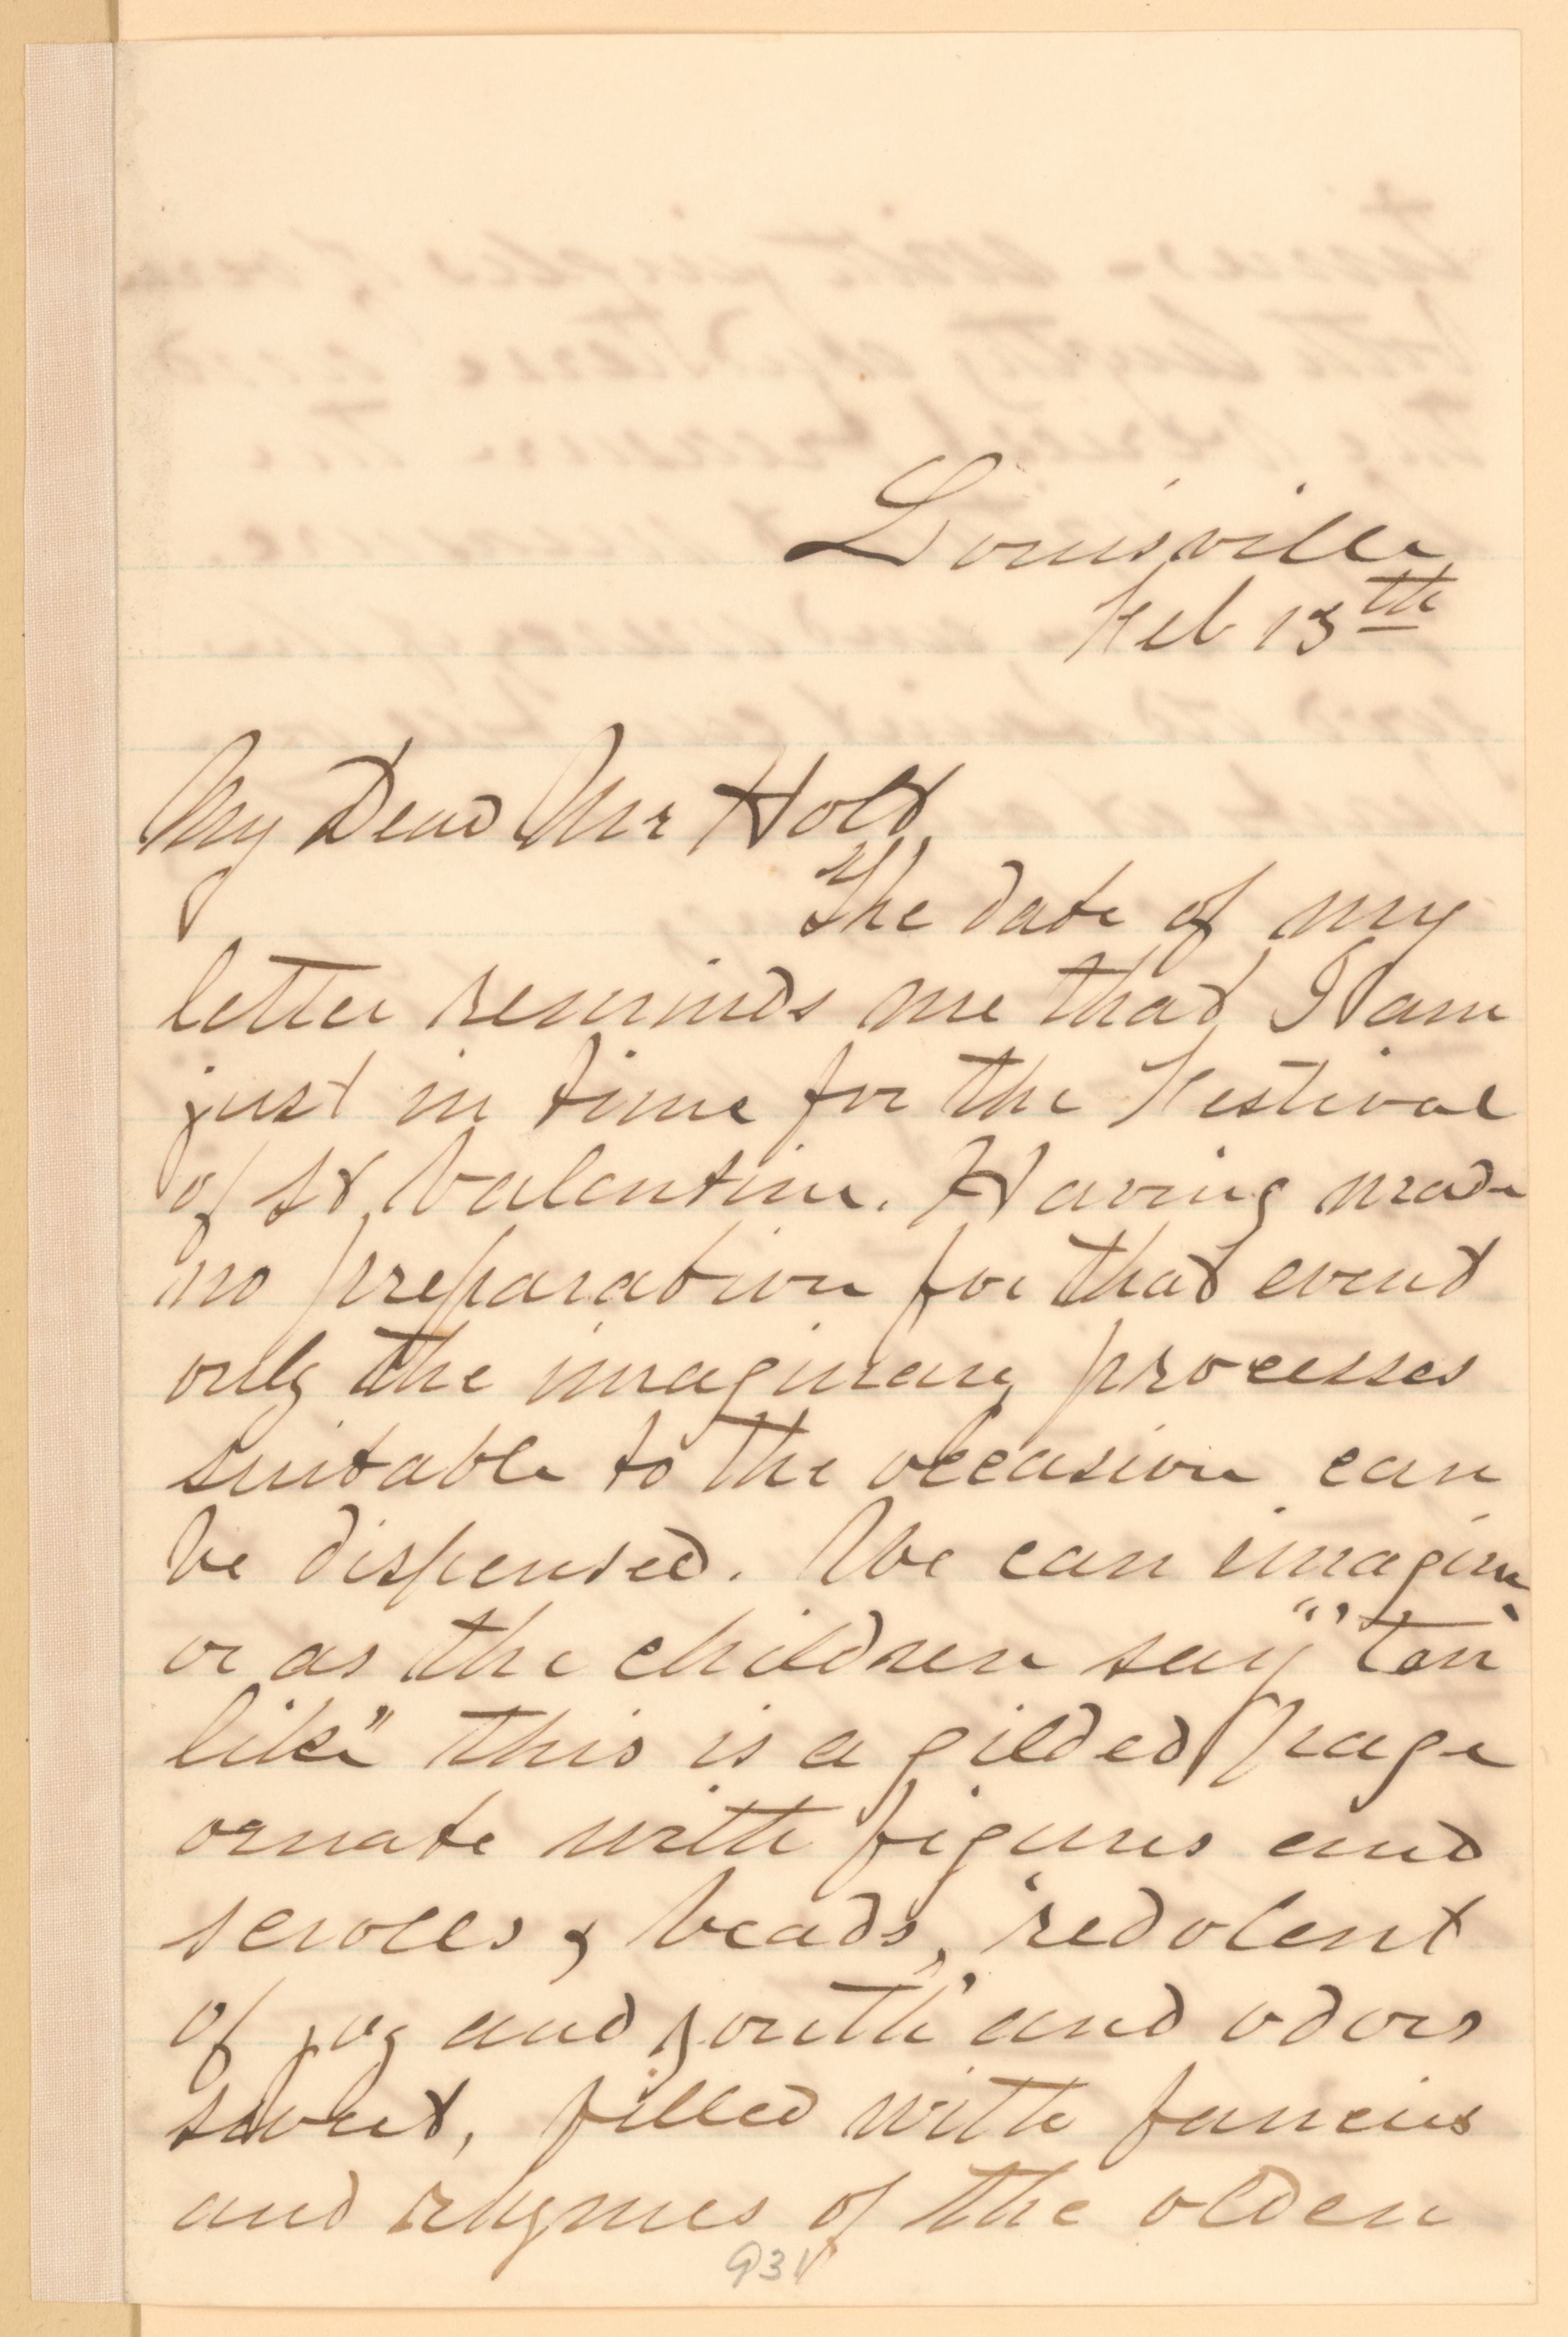 Louisville
Feb 13th
My Dear Mr Holt
The date of my
letter reminds me that I am
just in time for the Festival
of St Valentine. Having made
no preparation for that event
only the imaginary processes
suitable to the occasion can
be dispensed. We can imagine
or as the children say "
like" this is a gilded page
ornate with figures and
scrolls & beads, "redolent
of joy and youth" and odors
sweet, filled with fancies
and rhymes of the olden
931